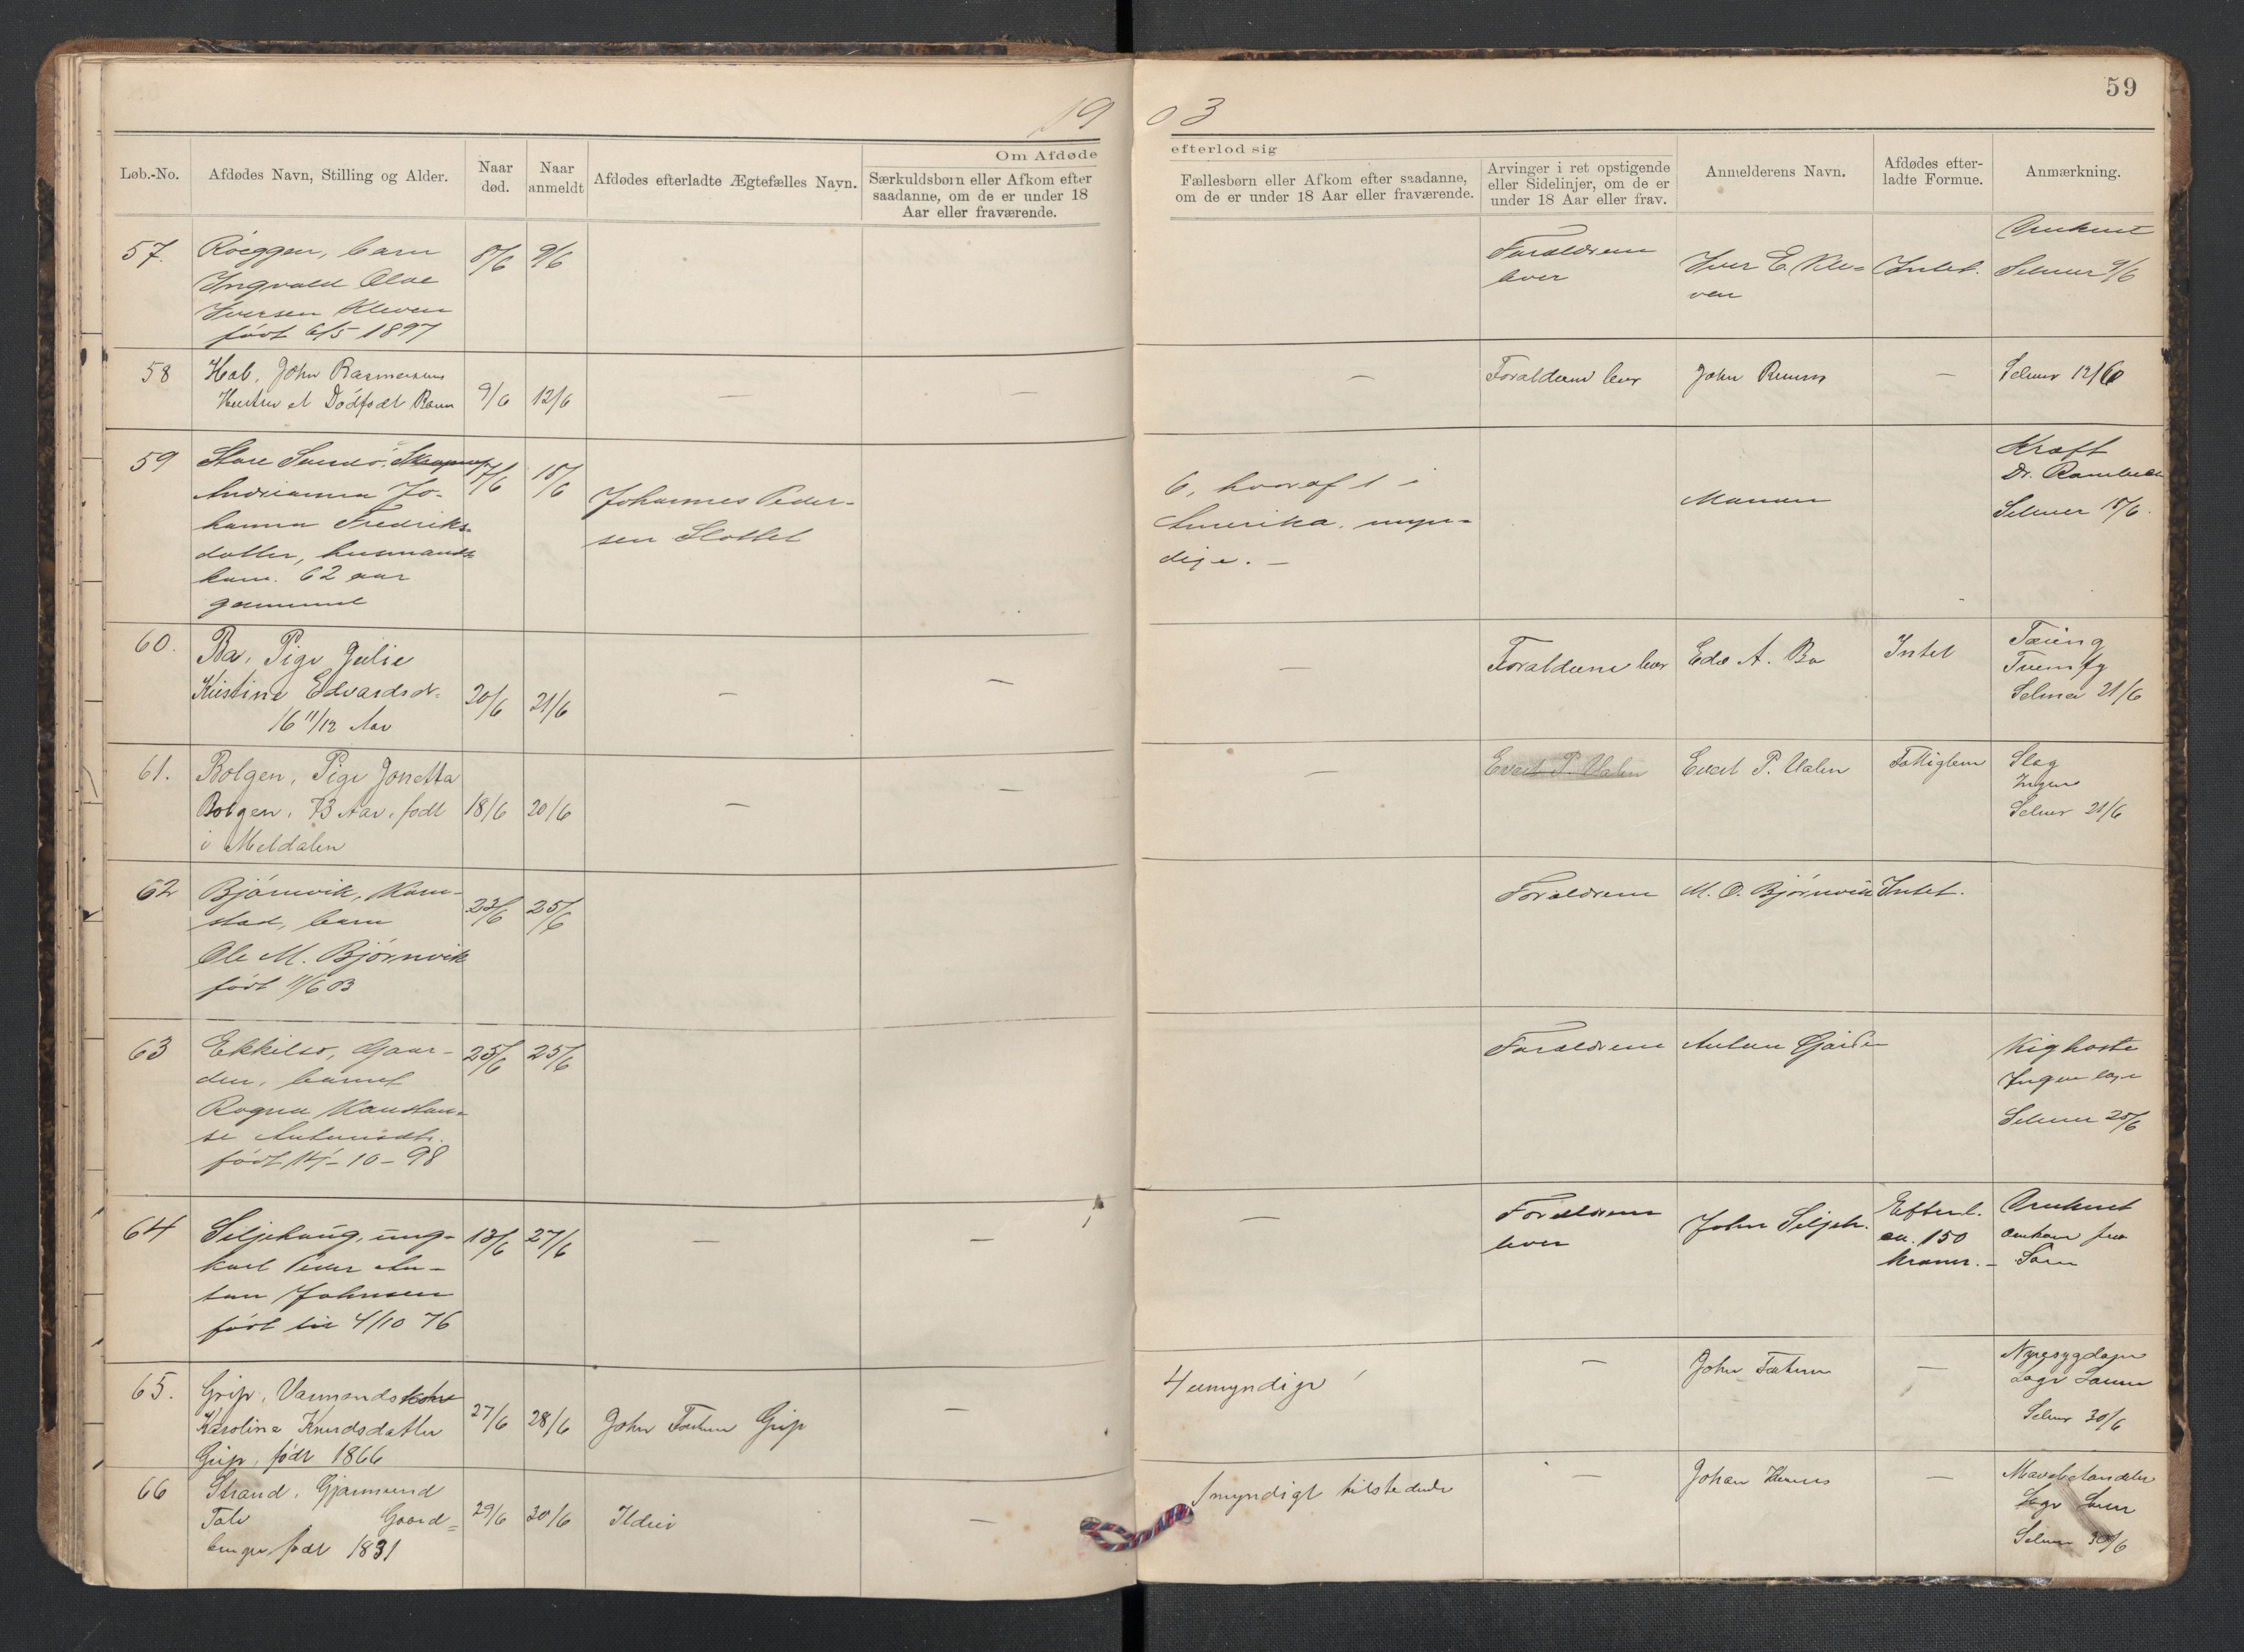 59
19 03
Om Afdøde efterlod sig
Løb.-No.
Afdødes Navn, Stilling og Alder.
Naar død.
Naar anmeldt
Afdødes efterladte Ægtefælles Navn.
Særkuldsbørn eller Afkom efter
saadanne, om de er under 18
Aar eller fraværende.
Fællesbørn eller Afkom efter saadanne,
om de er under 18 Aar eller fraværende.
Arvinger i ret opstigende
eller Sidelinjer, om de er
under 18 Aar eller frav.
Anmelderens Navn.
Afdødes efter-
ladte Formue.
Anmærkning.
57.
barn
Ingvald Olae
Iversen Kleven
født 6/5 1897
8/6
9/6
Forældrene
lever
Iver E. Kle-
ven
Intet.
Selmer 9/6
58
John Rasmussens
Hustru et Dødfødt Barn
9/6
12/6
—
—
—
Forælderne lever
John
—
Selmer 12/6
59
Store
Andrianna Jo-
hanna Fredriks-
datter, husmands-
kone. 62 aar
gammel
17/6
18/6
Johannes Peder-
sen Slottet
6, hvoraf 1 i
Amerika, myn-
dige. —
Manden
Kræft
Dr.
Selmer 18/6.
60.
Bø, Pige Julie
Kristine Edvardsd.
16 11/12 Aar
20/6
21/6
—
—
—
Forælderne lever
Edv A. Bø
Intet
Tæring
Selmer 21/6
61.
Bolgen, Pige Jonetta
Bolgen, 73 Aar, født
i Meldalen
18/6
20/6
—
—
—
P. Valen
P. Valen
Fattiglem
Slag
Ingen
Selmer 21/6
62
Bjørnvik, Korn-
stad, barn
Ole M. Bjørnvik
født 11/6 03
23/6
25/6
Forældrene
M. O. Bjørnvik
Intet.
63
Ekkilsø, Gaar-
den, barnet
Ragna Konstan-
se Antonsdtr.
født 14 - 10 - 98
25/6
25/6
Forældrene
Anton
Kighoste
Ingen læge
Selmer 25/6
64
Siljehaug, ung-
karl Peder An-
ton Johnsen
født 4/10 76
13/6
27/6
—
—
—
Forældrene
lever
John Siljeh.
Efterl.
ca. 150
kroner. —
Omkomet
65.
Grip, Vaanmandskone
Karolina Knudsdatter
Grip, født 1866
27/6
28/6
John Grip
—
4 umyndige
—
John
—
Nyresygdom
Læge
Selmer 30/6
66
Strand, Gjørmund
Gaard-
bruger født 1831
29/6
30/6
Ildri
—
1 myndigt tilstede
—
Johan
—
Læge
Selmer 30/6